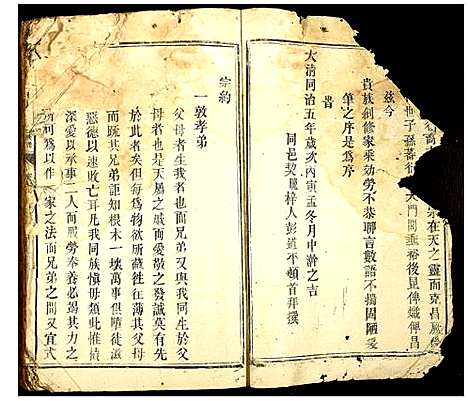 在天之靈而克昌厥
世子孫蕃衍大門閭垂裕後昆俾熾俾昌
茲今
貴族創修家乘劬勞不恭聊言數語不揣固陋妥
筆之序是爲序
旹
大清同治五年歲次丙寅孟冬月中澣之吉
同邑契戚梓人彭道不頓首拜撰
宗約
一敦孝弟
父母者生我者也而兄弟又與我同生於父
母者也是天屬之戚而愛敬之發誠莫有先
於此者矣但每爲物欲所蔽徃往薄其父母
而踈其兄弟詎知根木一壞萬事俱隳徒滋
惡德以速敗亡耳凡我同族慎毋類此惟積
深愛以承事二人而服勞奉養必竭其力之
所可爲以作家之法而兄弟之間又宜式